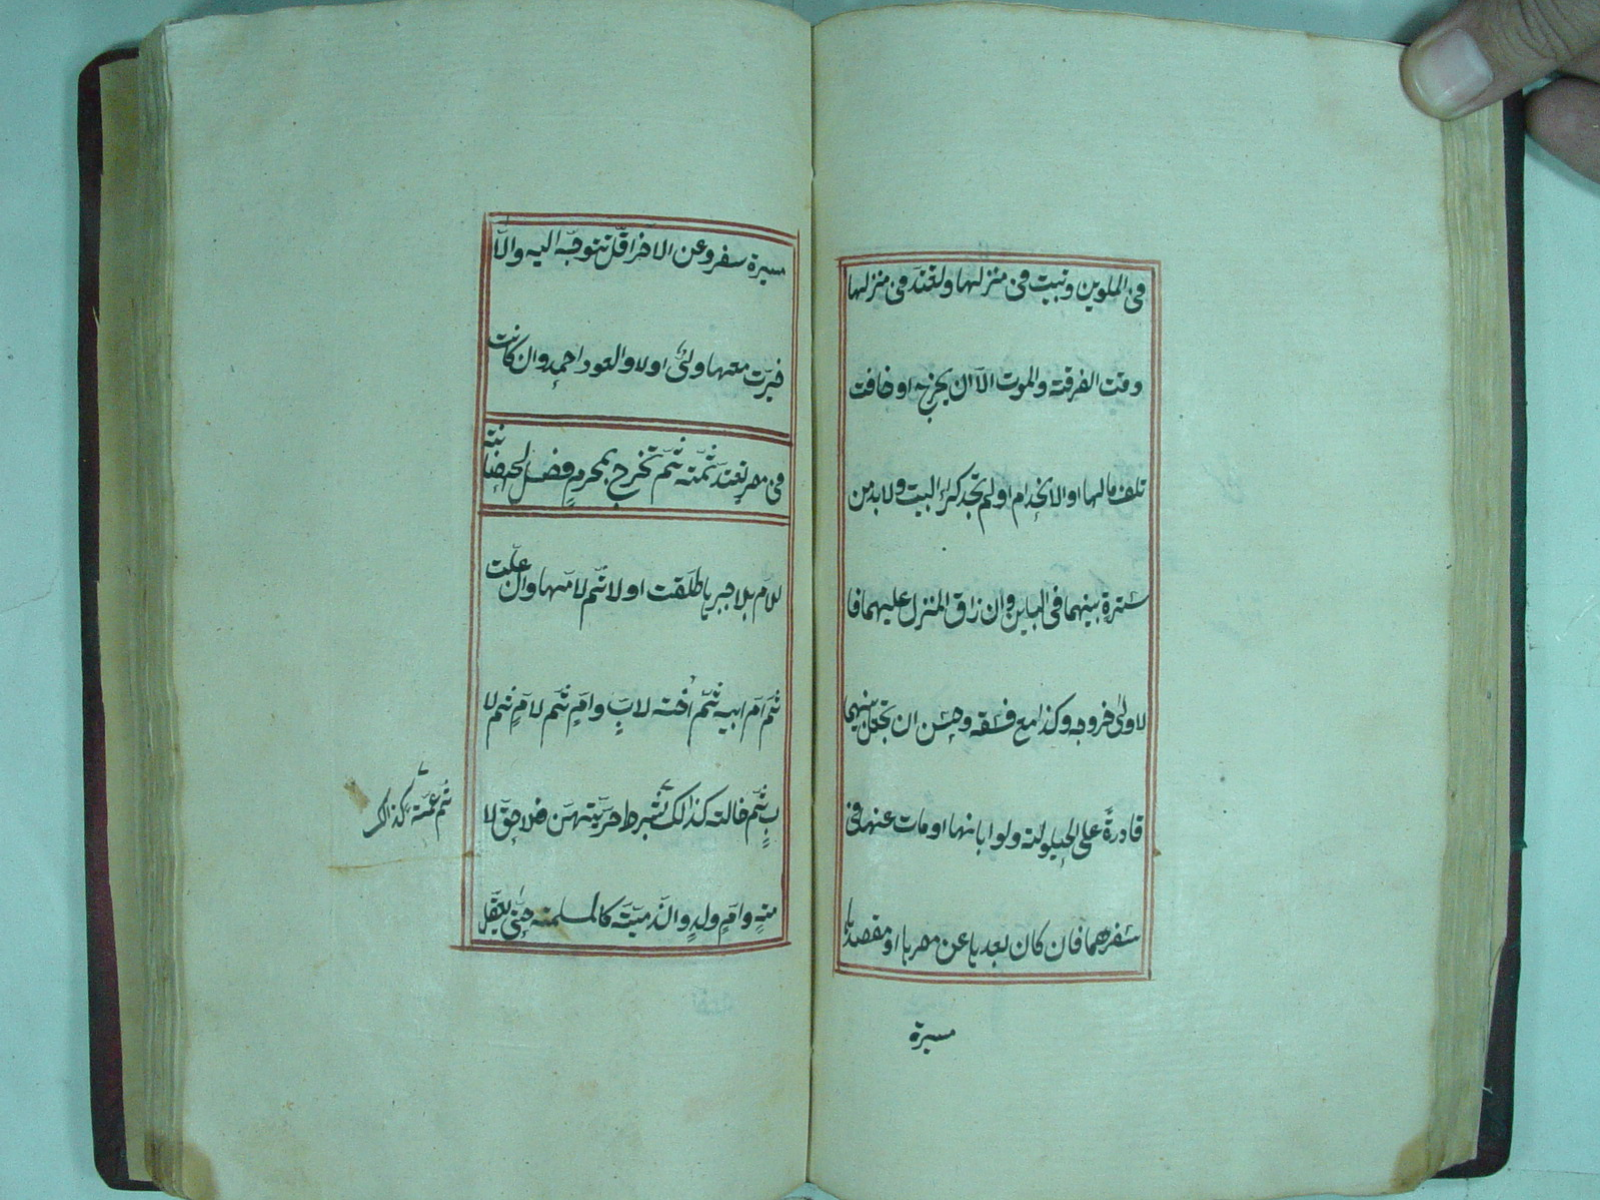 فى الملوين ونبيت فى منزلها ولتعتد فى منزلها
وقت الفرقة والموت الّا ان يخرج او خافت
تلف مالها او الانهدام او لم تجد كراء البيت ولا بد من
سترة بينهما فى الباين وان ضاق المنزل عليهما فا
لاولى خروجه وكذا مع فسقه وحسن ان يجعل بينهما
قادرة على الحيلولة ولو ابانها او مات عنها فى
سفرهما فان كان بعدها عن مصرها او مقصدها
مسيرة
مسيرة سفر وعن الاخر اقل تتوجه اليه والّا
خيرت معها ولىّ او لا والعود احمد وان كانت
فى مصر تعتد ثمّة ثم تخرج بمحرم فصل الحضانة
للام بلا جبرها طلقت او لا ثم لامها وان علت
ثم ام ابيه ثم اخته لاب وام ثم لام ثم لا
ب ثم خالته كذالك بشرط حريتهن فلا حق لا
ثم عمته كذالك
مة وام ولد والذمية كالمسلمة حتى يعقل